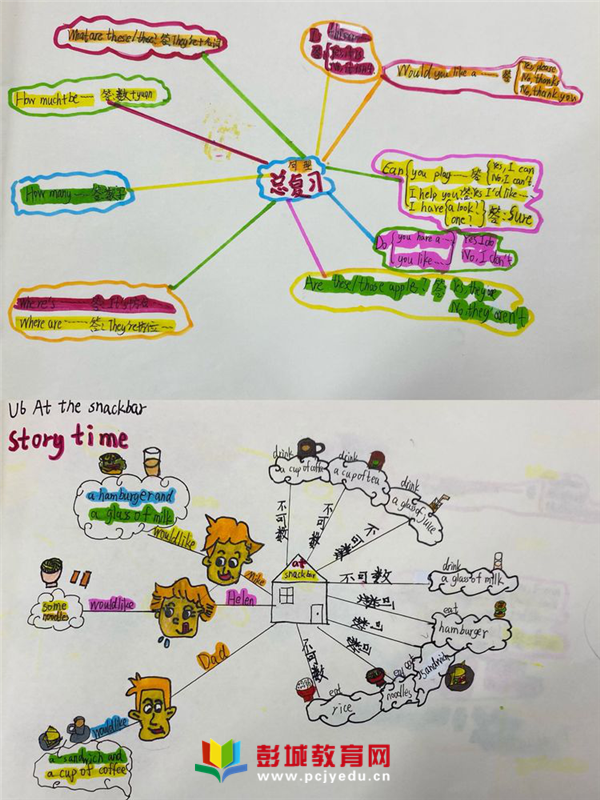 What are these/those? 答 They're+名词
How much be ...... 答:数+yuan
How many ... 答:数字
Where's
Where are ...... 答: They're
句型
总复习
Yes
No, it isn't
Would you like a ...... 答
Yes, please
No, thanks
No, thank you
Can
you play ... 答
Yes, I can
No, I can't
I help you? 答 Yes I'd like ...
I have
a look?
one?
答: Sure
Do
you have a ...
you like ...
Yes I do
No, I don't
Are these/those apples? 答 Yes, they
No, they aren't
U6 At the snackbar
Story time
a hamburger and
a glass of milk
would like
Mike
some
noodles
would like
Helen
Dad
would like
a sandwich and
a cup of coffee
at
snackbar
drink
a cup of coffee
不可数
drink
a cup of tea
不可数
drink
a glass of juice
不
drink
a glass of milk
不可数
eat
hamburger
可
eat
sandwich
可
eat
noodles
eat
rice
不可数
彭城教育网
www.pcjyedu.cn